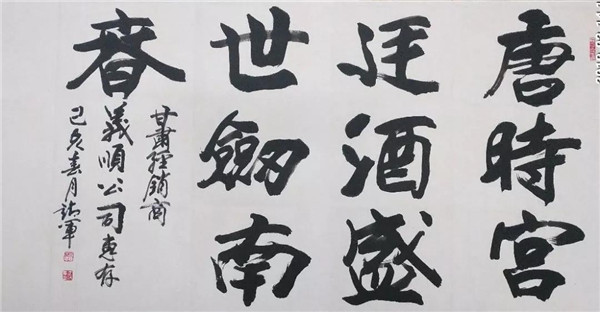 唐時宮
廷酒盛
世劍南
春
甘肅經銷商
義順公司惠存
己亥春月